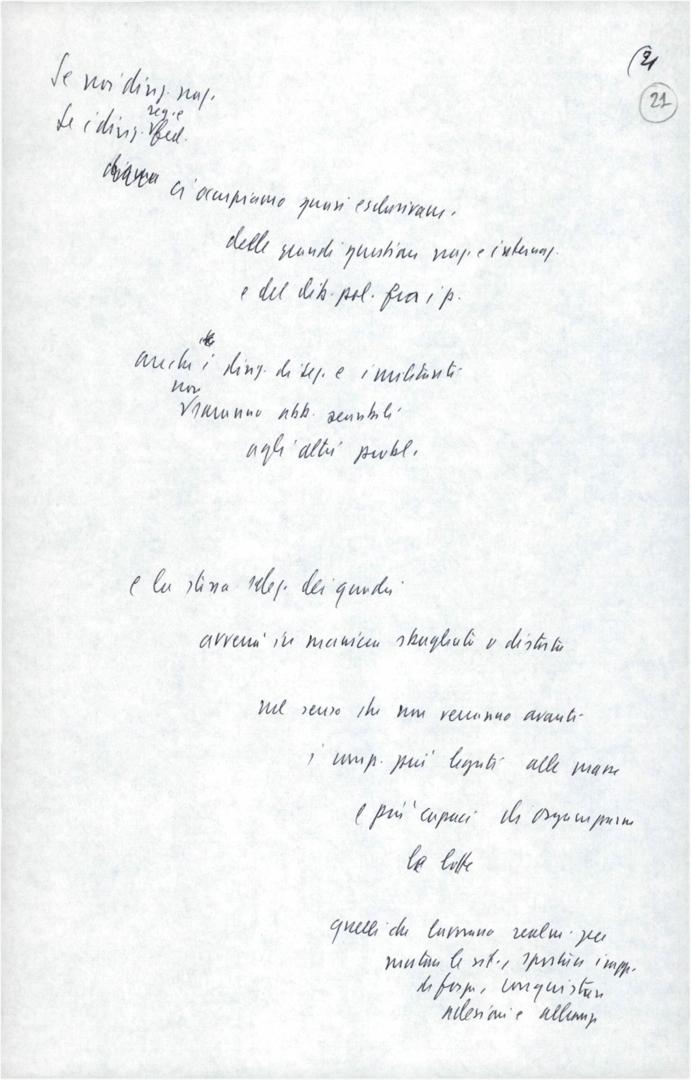 21
21
Se noi dirig. naz.
Se i dirig. reg. e fed.
ci occupiamo quasi esclusivam.
delle grandi questioni naz. e internaz.
e del dib. pol. fra i p.
anche i dirig. di sez. e i militanti
non saranno abb. sensibili
agli altri probl.
e la stessa selez. dei quadri
avverrà in maniera sbagliata o distorta
nel senso che non verranno avanti
i comp. più legati alle masse
e più capaci di organizzarne
le lotte
quelli che lavorano realm. per
mutare le sit., spostare i rapp.
di forza, conquistare
adesioni e alleanze